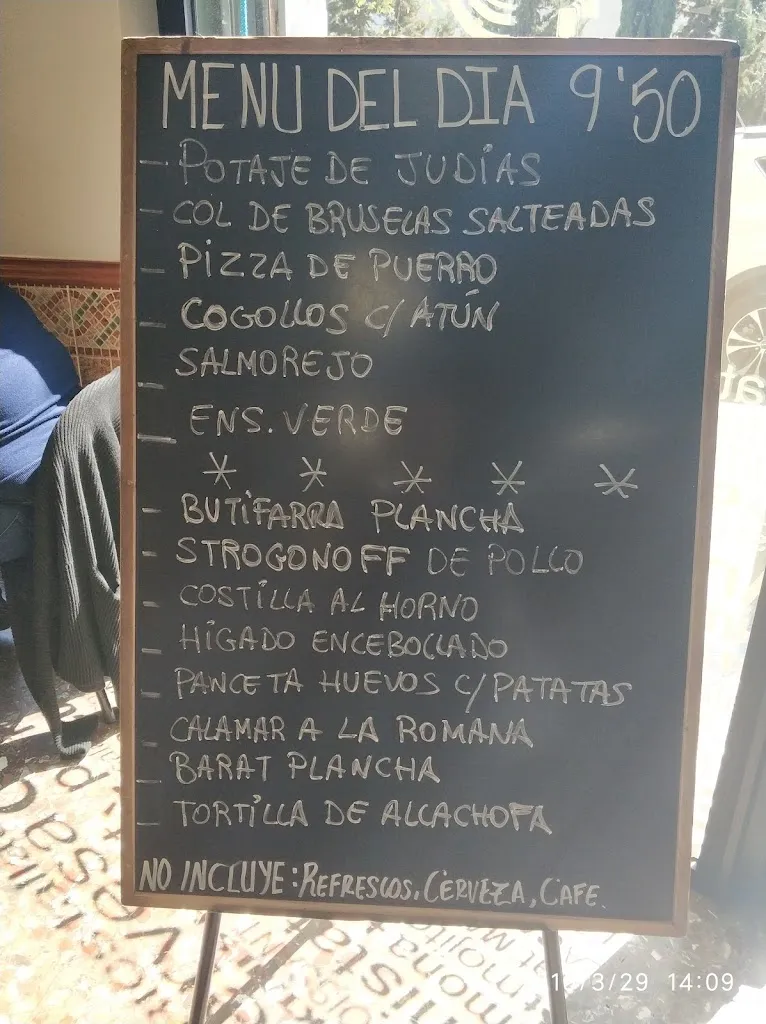 MENU DEL DIA 9'50
- POTAJE DE JUDÍAS
- COL DE BRUSELAS SALTEADAS
- PIZZA DE PUERRO
- COGOLLOS C/ATÚN
- SALMOREJO
- ENS. VERDE
* * * * *
- BUTIFARRA PLANCHA
- STROGONOFF DE POLLO
- COSTILLA AL HORNO
- HIGADO ENCEBOLLADO
- PANCETA HUEVOS C/PATATAS
- CALAMAR A LA ROMANA
- BARAT PLANCHA
- TORTILLA DE ALCACHOFA
NO INCLUYE: REFRESCOS, CERVEZA, CAFE.
3/29 14:09